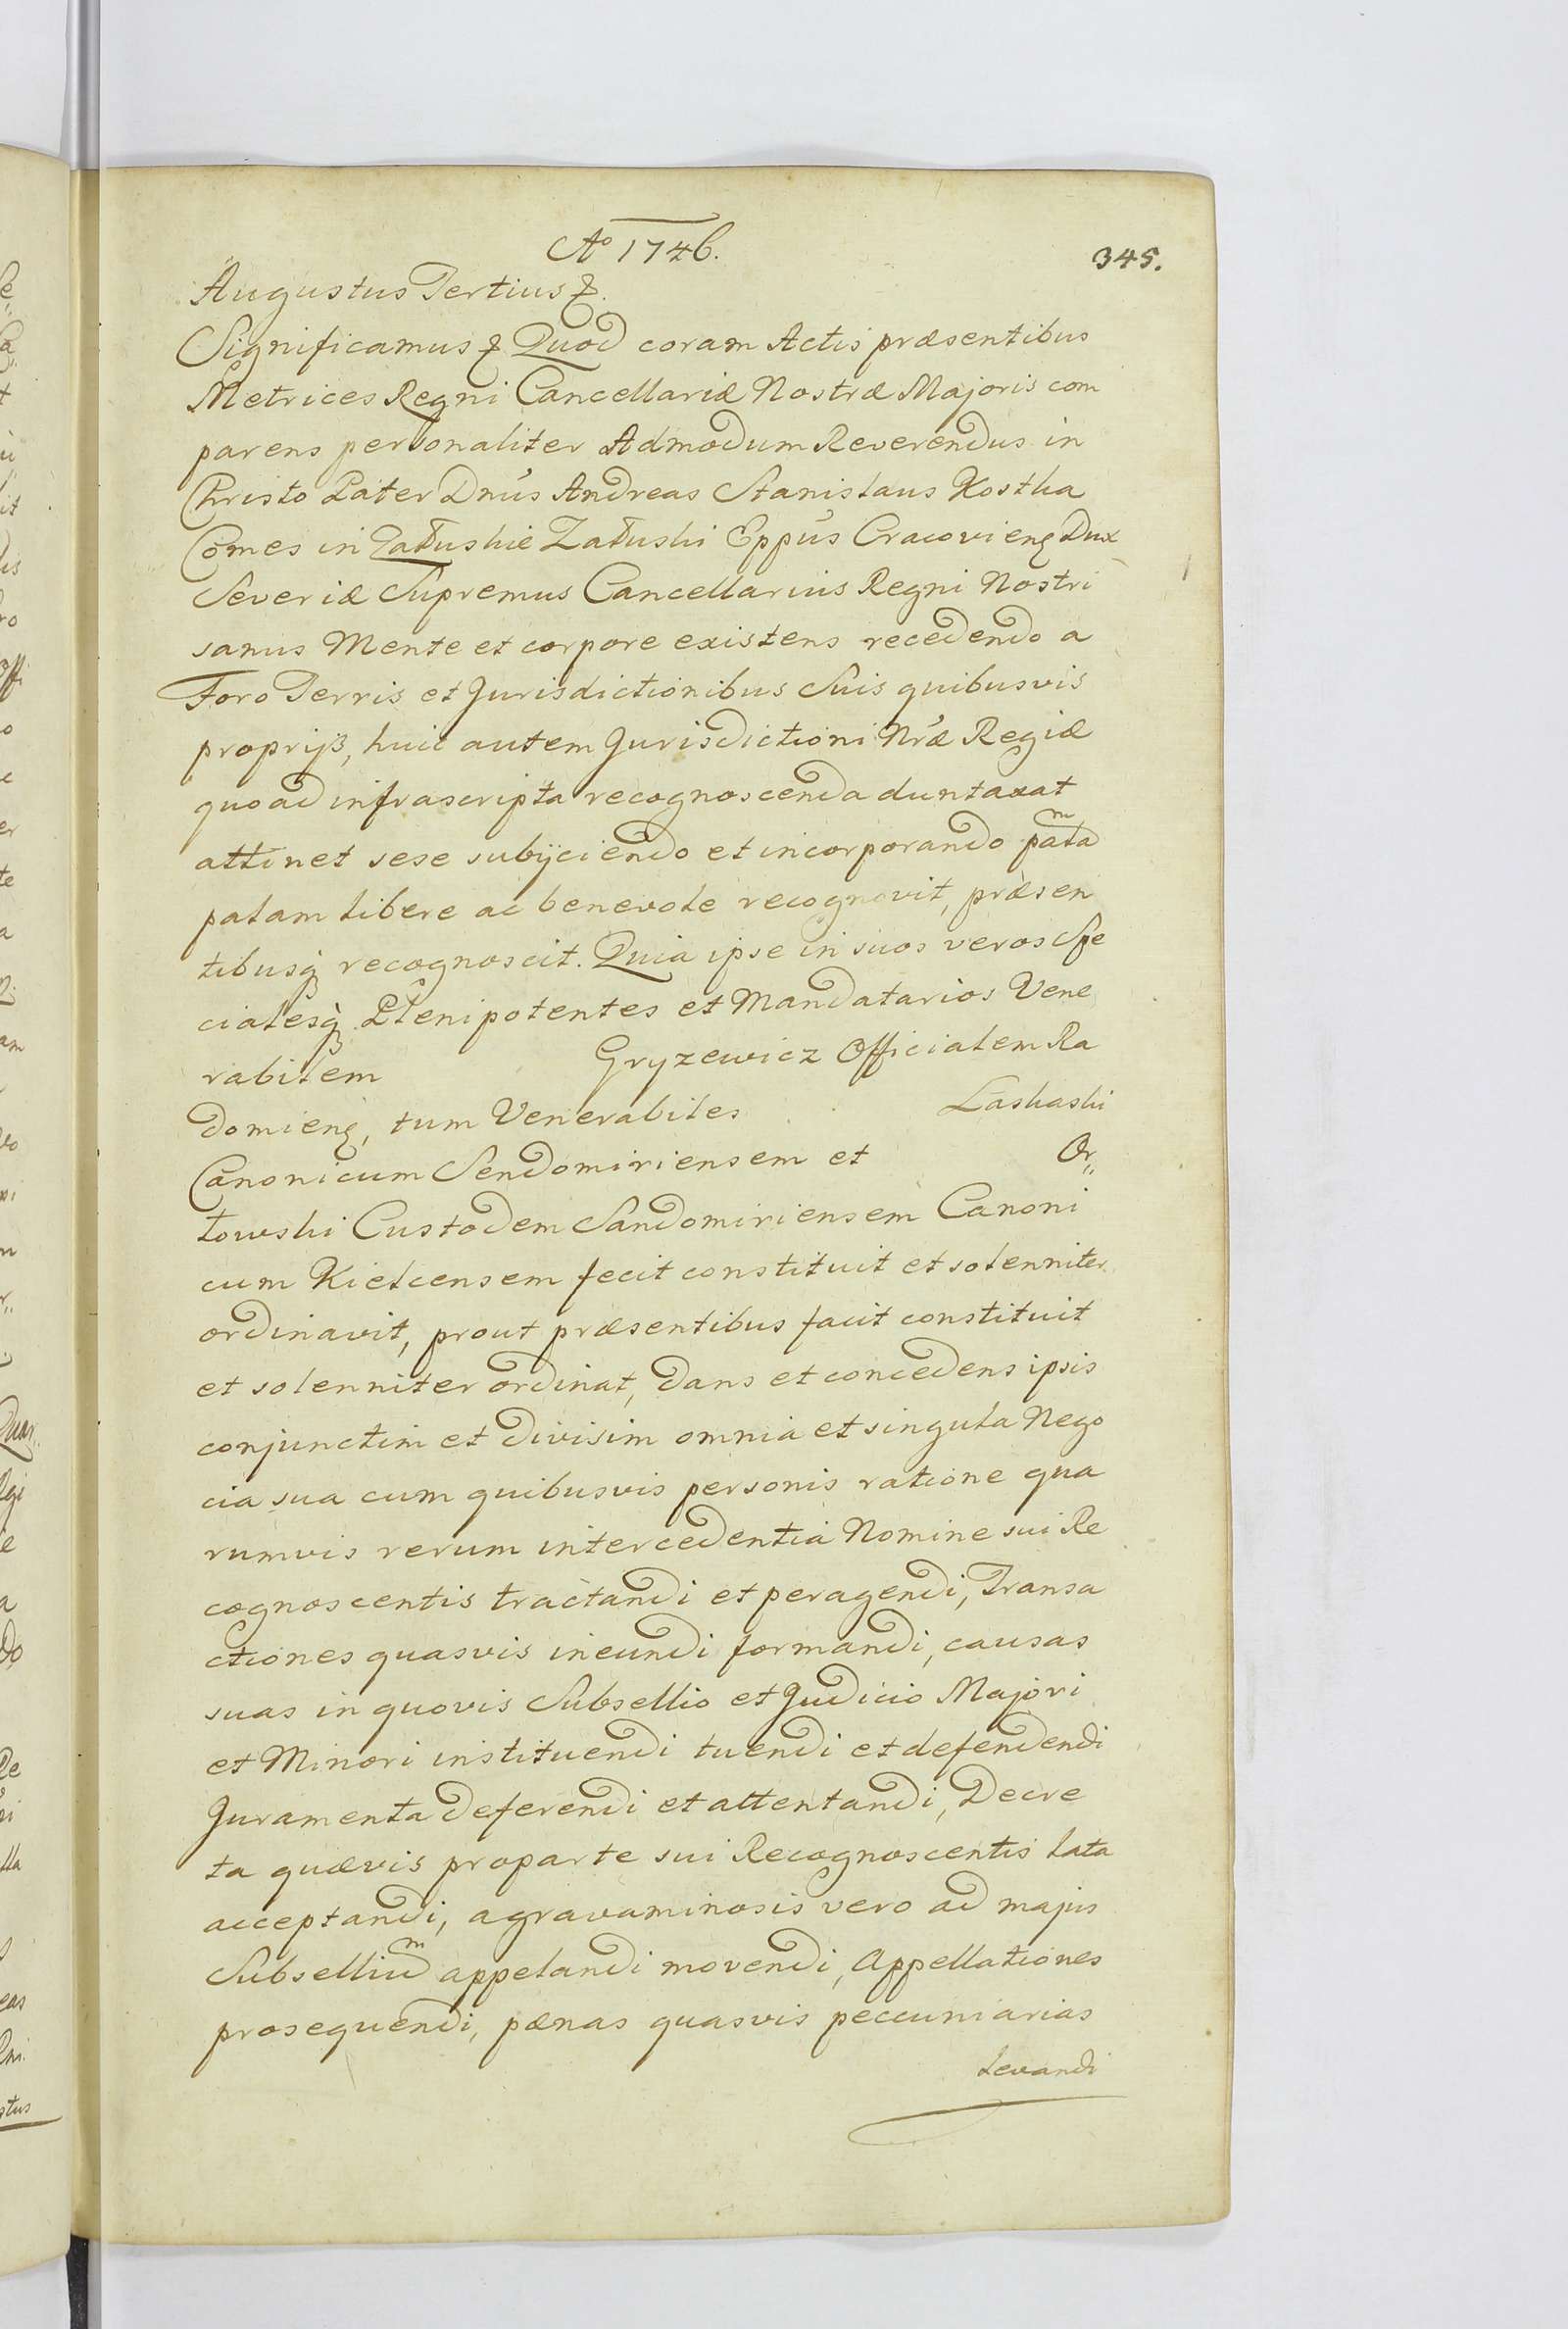 Ao 1746.
345.
Augustus Tertius &.
Significamus & Quod coram Actis præsentibus
Metrices Regni Cancellariæ Nostræ Majoris com
parens personaliter Admodum Reverendus in
Christo Pater Dnus Andreas Stanislaus Kostka
Comes in Załuskie Załuski Eppus Cracovieng Dux
Severiæ Supremus Cancellarius Regni Nostri
sanus Mente et corpore existens recedendo a
Foro Terris et Jurisdictionibus Suis quibusvis
proprijs, huic autem Jurisdictioni Nræ Regiæ
quoad infrascripta recognoscenda duntaxat
attinet sese subijciendo et incorporando
palam libere ac benevole recognovit, præsen
tibusq recognoscit. Quia ipse in suos veros Spe
cialesq Plenipotentes et Mandatarios Vene
rabilem Gryzewicz Officialem Ra
domieng, tum Venerabiles Laskaski
Canonicum Sendomiriensem et Or„
łowski Custodem Sandomiriensem Canoni
cum Kielcensem fecit constituit et solenniter
ordinavit, prout præsentibus facit constituit
et solenniter ordinat, dans et concedens ipsis
conjunctim et divisim omnia et singula Nego
cia sua cum quibusvis personis ratione qua
rumvis rerum intercedentia Nomine sui Re
cognoscentis tractandi et peragendi, Transa
ctiones quasvis ineundi formandi, causas
suas in quovis Subsellio et Judicio Majori
et Minori instituendi tuendi et defendendi
Juramenta deferendi et attentandi, Decre
ta quævis proparte sui Recognoscentis lata
acceptandi, agravaminosis vero ad majus
Subsellium appelandi movendi, Appellationes
prosequendi, pænas quasvis peccuniarias
levandi